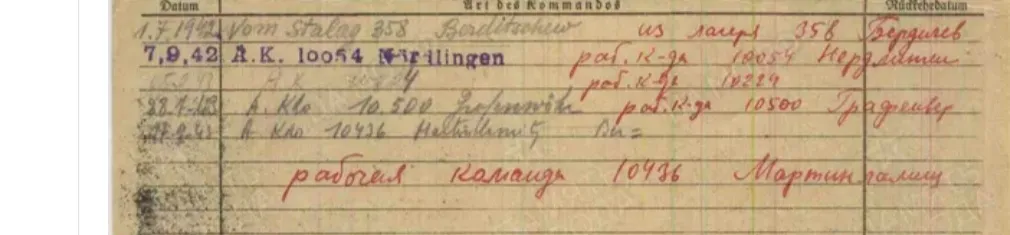 Datum Art des Kommandos Rückkehrdatum
1.7.1942 Vom Stalag 358 Berditschew из лагеря 358 Бердичев
7,9,42 A.K. 10054 Nördlingen раб. К-да 10054 Нердлинген
A.K. 10224 раб. К-да 10224
A. Kdo 10.500 раб. К-да 10500 Графенвер
A Kdo 10436
рабочая команда 10436 Мартин